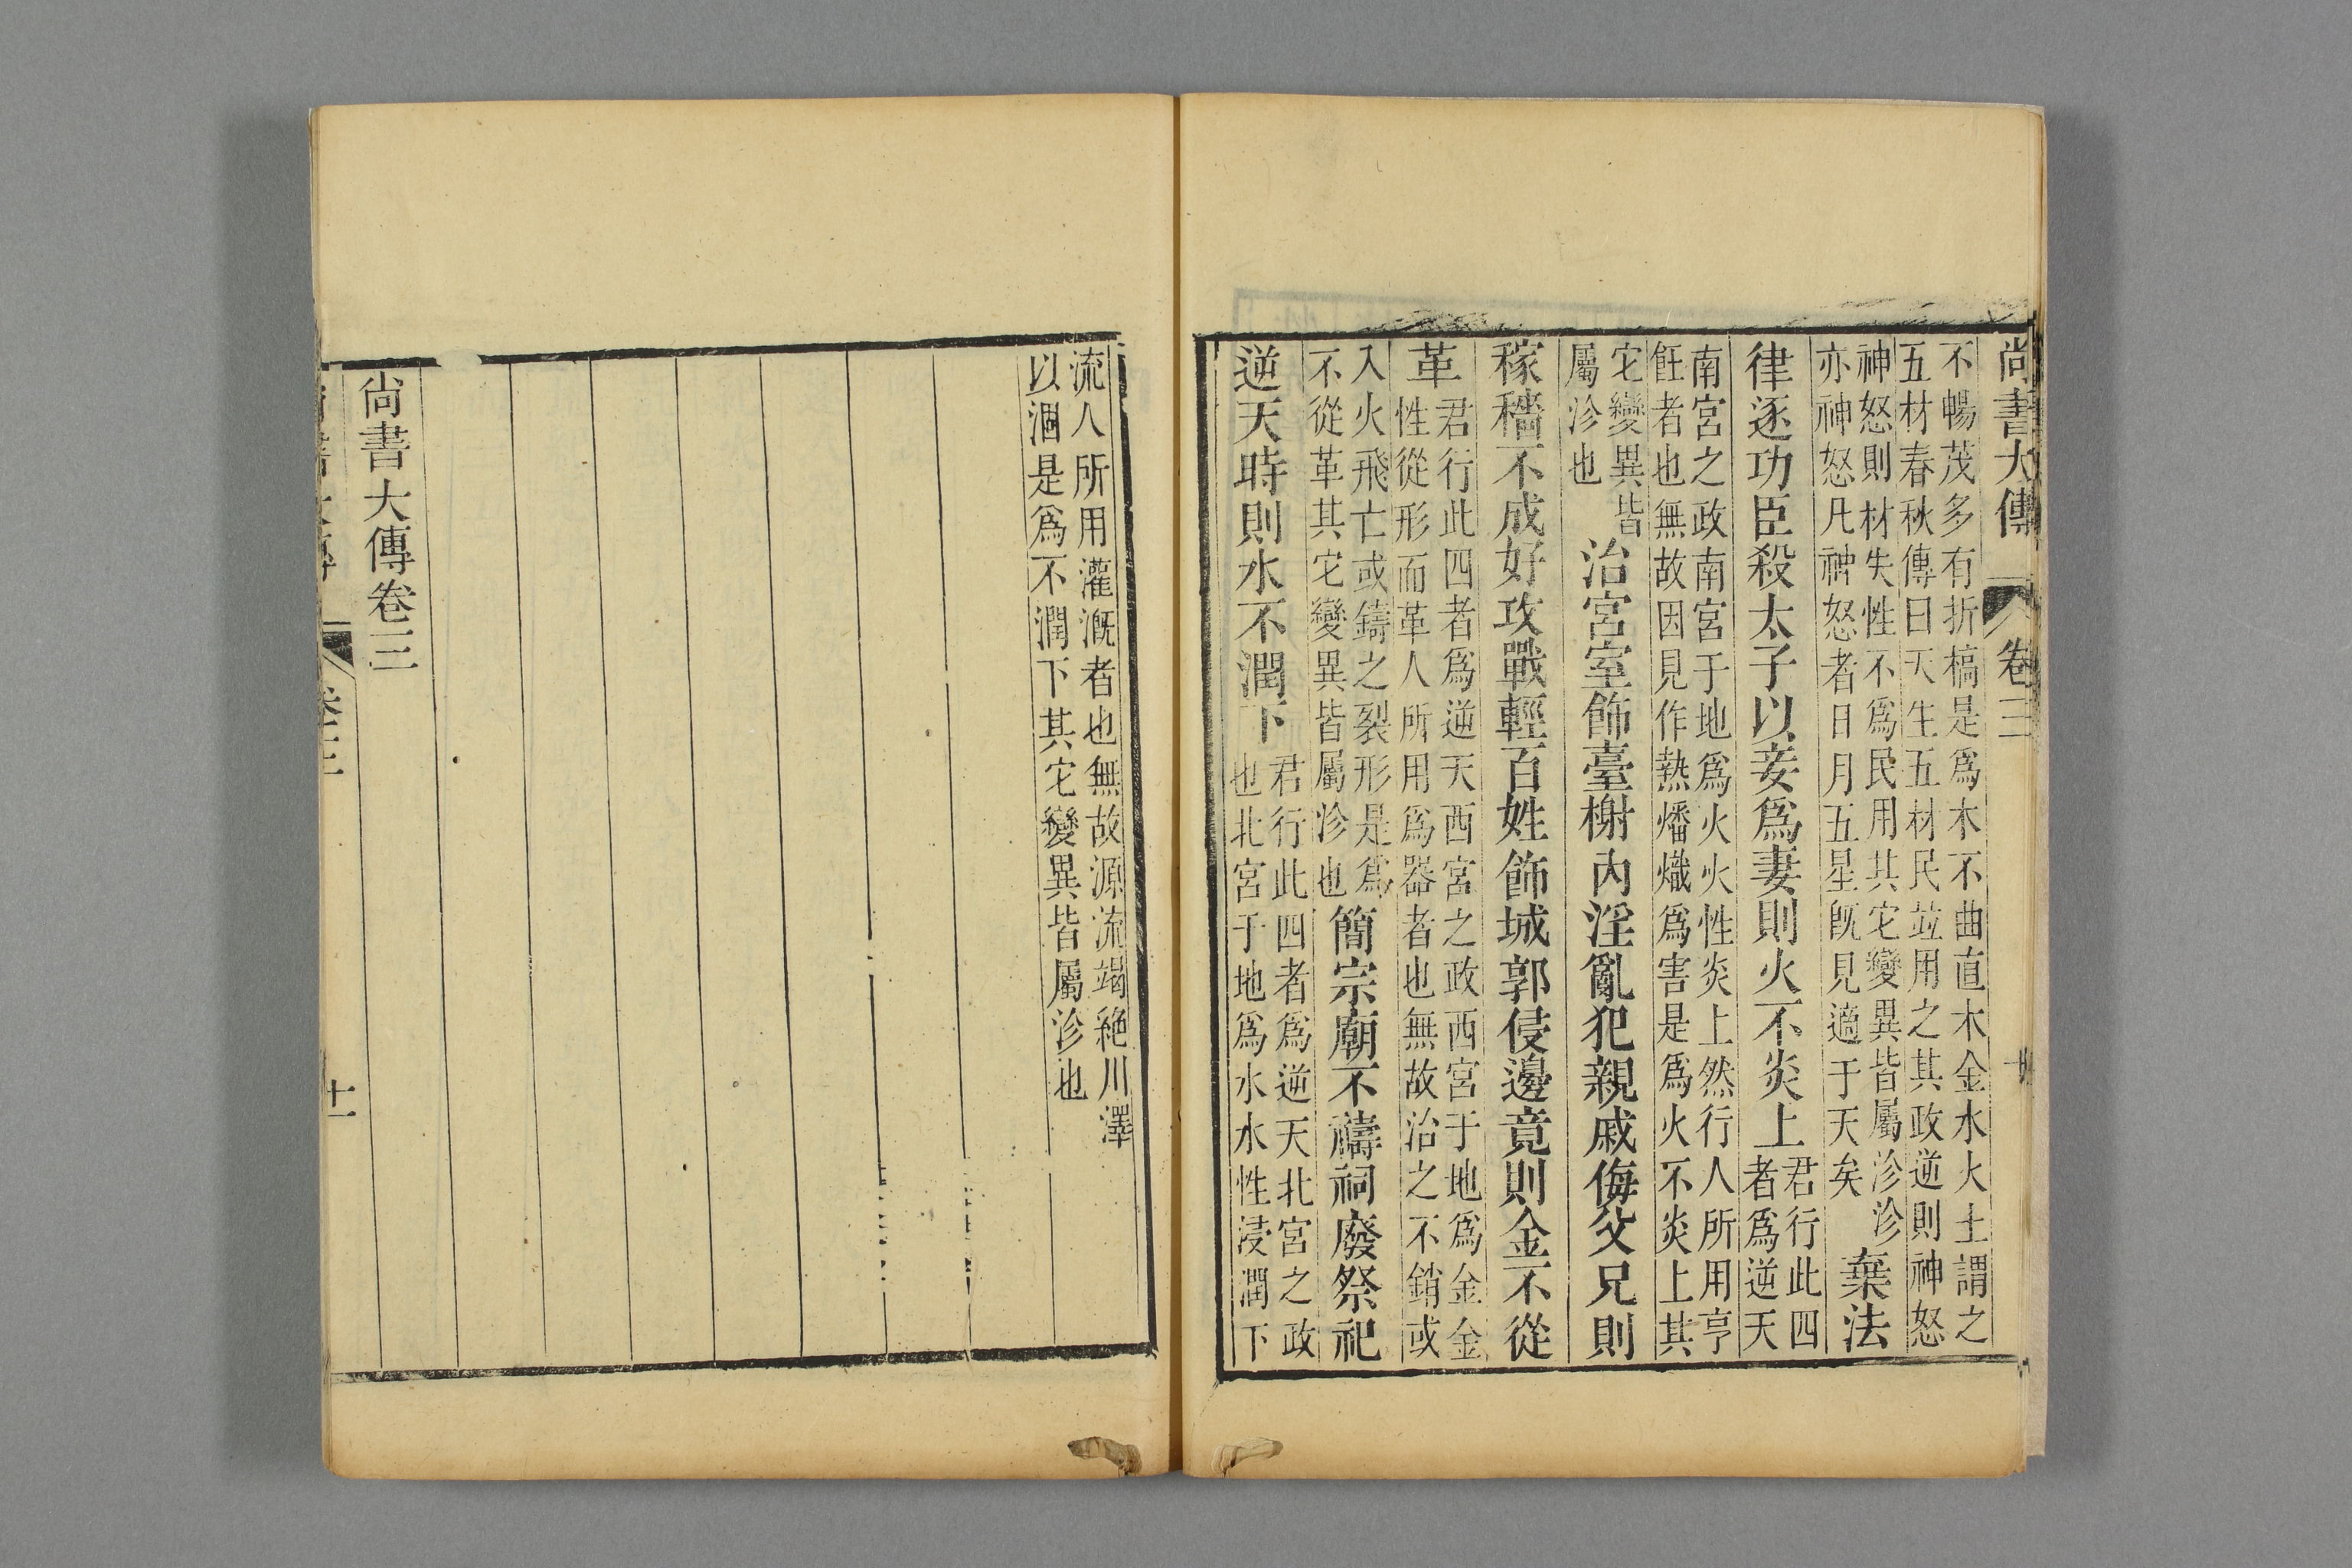 尚書大傳 卷三 十
不暢茂多有折槁是爲木不曲直木金水火土謂之
五材春秋傳曰天生五材民並用之其政逆則神怒
神怒則材失性不爲民用其它變異皆屬沴沴
亦神怒凡神怒者日月五星旣見適于天矣
棄法
律逐功臣殺太子以妾爲妻則火不炎上
君行此四
者爲逆天
南宮之政南宮于地爲火火性炎上然行人所用亨
飪者也無故因見作熱燔熾爲害是爲火不炎上其
它變異皆
屬沴也
治宮室飾臺榭內淫亂犯親戚侮父兄則
稼穡不成好攻戰輕百姓飾城郭侵邊竟則金不從
革
君行此四者爲逆天西宮之政西宮于地爲金金
性從形而革人所用爲器者也無故治之不銷或
入火飛亡或鑄之裂形是爲
不從革其它變異皆屬沴也
簡宗廟不禱祠廢祭祀
逆天時則水不潤下
君行此四者爲逆天北宮之政
也北宮于地爲水水性浸潤下
流人所用灌漑者也無故源流竭絶川澤
以涸是爲不潤下其它變異皆屬沴也
尚書大傳卷三
尚書大傳 卷三 十一